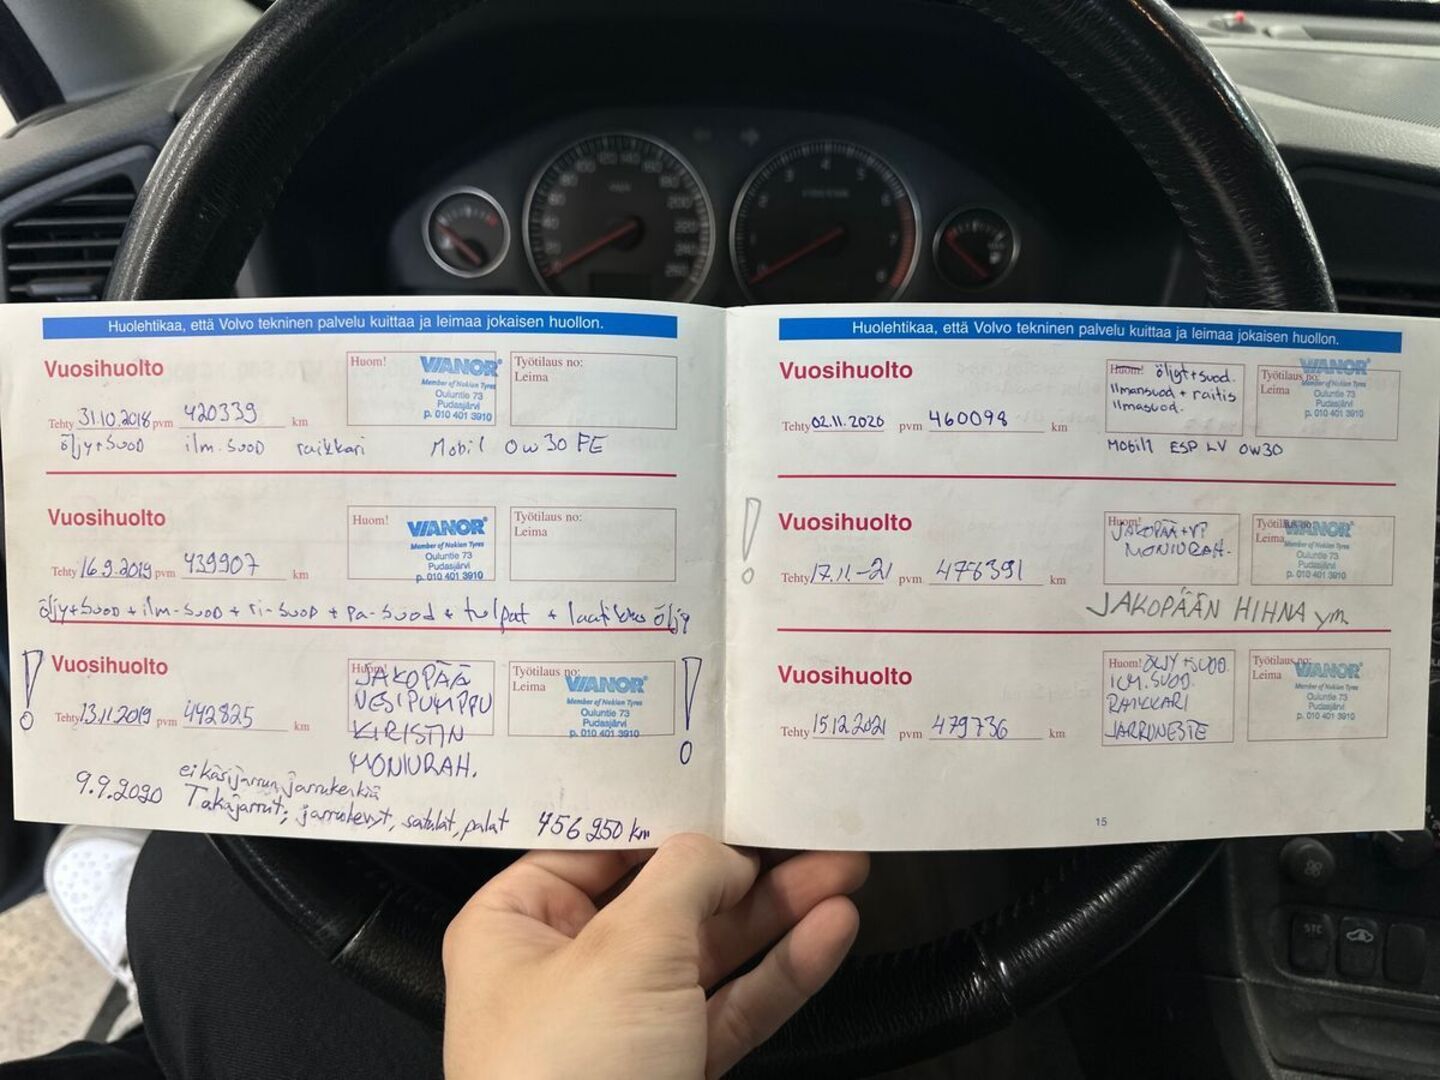 Huolehtikaa, että Volvo tekninen palvelu kuittaa ja leimaa jokaisen huollon.
Vuosihuolto
Huom!
VIANOR
Member of Nokian Tyres
Ouluntie 73
Pudasjärvi
p. 010 401 3910
Työtilaus no:
Leima
Tehty 31.10.2018 pvm 420339 km
öljy+suod ilm.suod raikkari Mobil 0w30 FE
Vuosihuolto
Huom!
VIANOR
Member of Nokian Tyres
Ouluntie 73
Pudasjärvi
p. 010 401 3910
Työtilaus no:
Leima
Tehty 16.9.2019 pvm 439907 km
öljy+suod + ilm-suod + ri-suod + pa-suod + tulpat + laatikko öljy
! Vuosihuolto
Huom!
JAKOPÄÄ
VESIPUMPPU
KIRISTIN
MONIURAH.
Työtilaus no:
Leima
VIANOR
Member of Nokian Tyres
Ouluntie 73
Pudasjärvi
p. 010 401 3910
!
Tehty 13.11.2019 pvm 442825 km
ei käsijarrun jarrukenkiä
9.9.2020 Takajarrut; jarrulevyt, satulat, palat 456250 km
Huolehtikaa, että Volvo tekninen palvelu kuittaa ja leimaa jokaisen huollon.
Vuosihuolto
Huom! öljyt+suod.
Ilmansuod + raitis
ilmasuod.
Työtilaus no:
Leima
VIANOR
Member of Nokian Tyres
Ouluntie 73
Pudasjärvi
p. 010 401 3910
Tehty 02.11.2020 pvm 460098 km
Mobil1 ESP LV 0W30
! Vuosihuolto
Huom!
JAKOPÄÄ+VP
MONIURAH.
Työtilaus
Leima
VIANOR
Member of Nokian Tyres
Ouluntie 73
Pudasjärvi
p. 010 401 3910
Tehty 17.11.-21 pvm 478391 km
JAKOPÄÄN HIHNA ym.
Vuosihuolto
Huom! ÖLJY+SUOD.
ILM.SUOD.
RAIKKARI
JARRUNESTE
Työtilaus no:
Leima
VIANOR
Member of Nokian Tyres
Ouluntie 73
Pudasjärvi
p. 010 401 3910
Tehty 15.12.2021 pvm 479736 km
15
STC